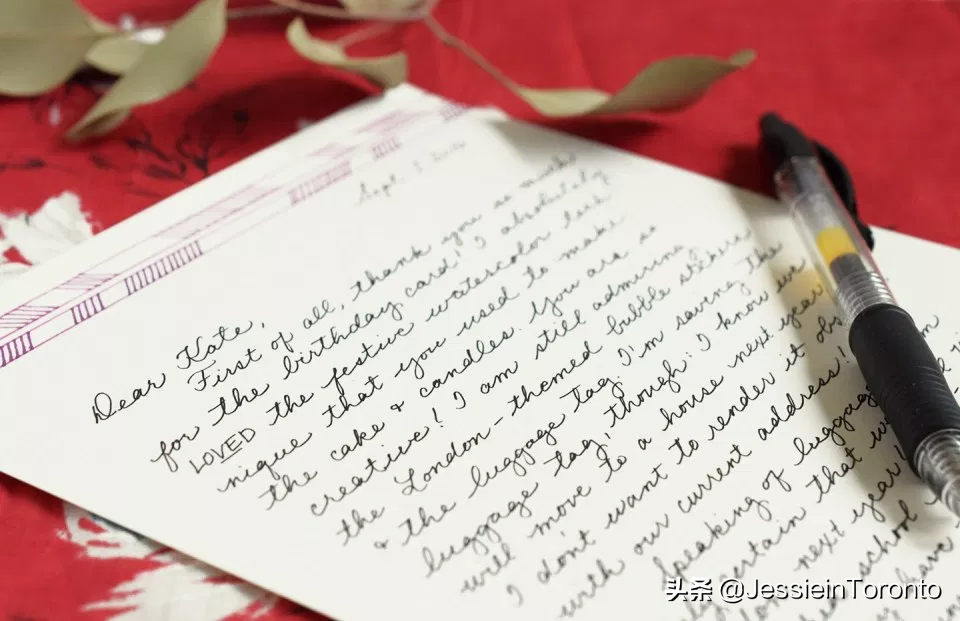 Sept.
Dear Kate,
First of all, thank you so much
for the birthday card! I absolutely
LOVED the festive watercolor tech
nique that you used to make
the cake & candles. You are so
creative! I am still admiring
the London-themed bubble stickers
& the luggage tag. I'm saving the
luggage tag, though: I know we
will move to a house next year
I don't want to render it obs
with our current address!
Speaking of luggage
certain that we
next year!
school
have
头条 @JessieinToronto